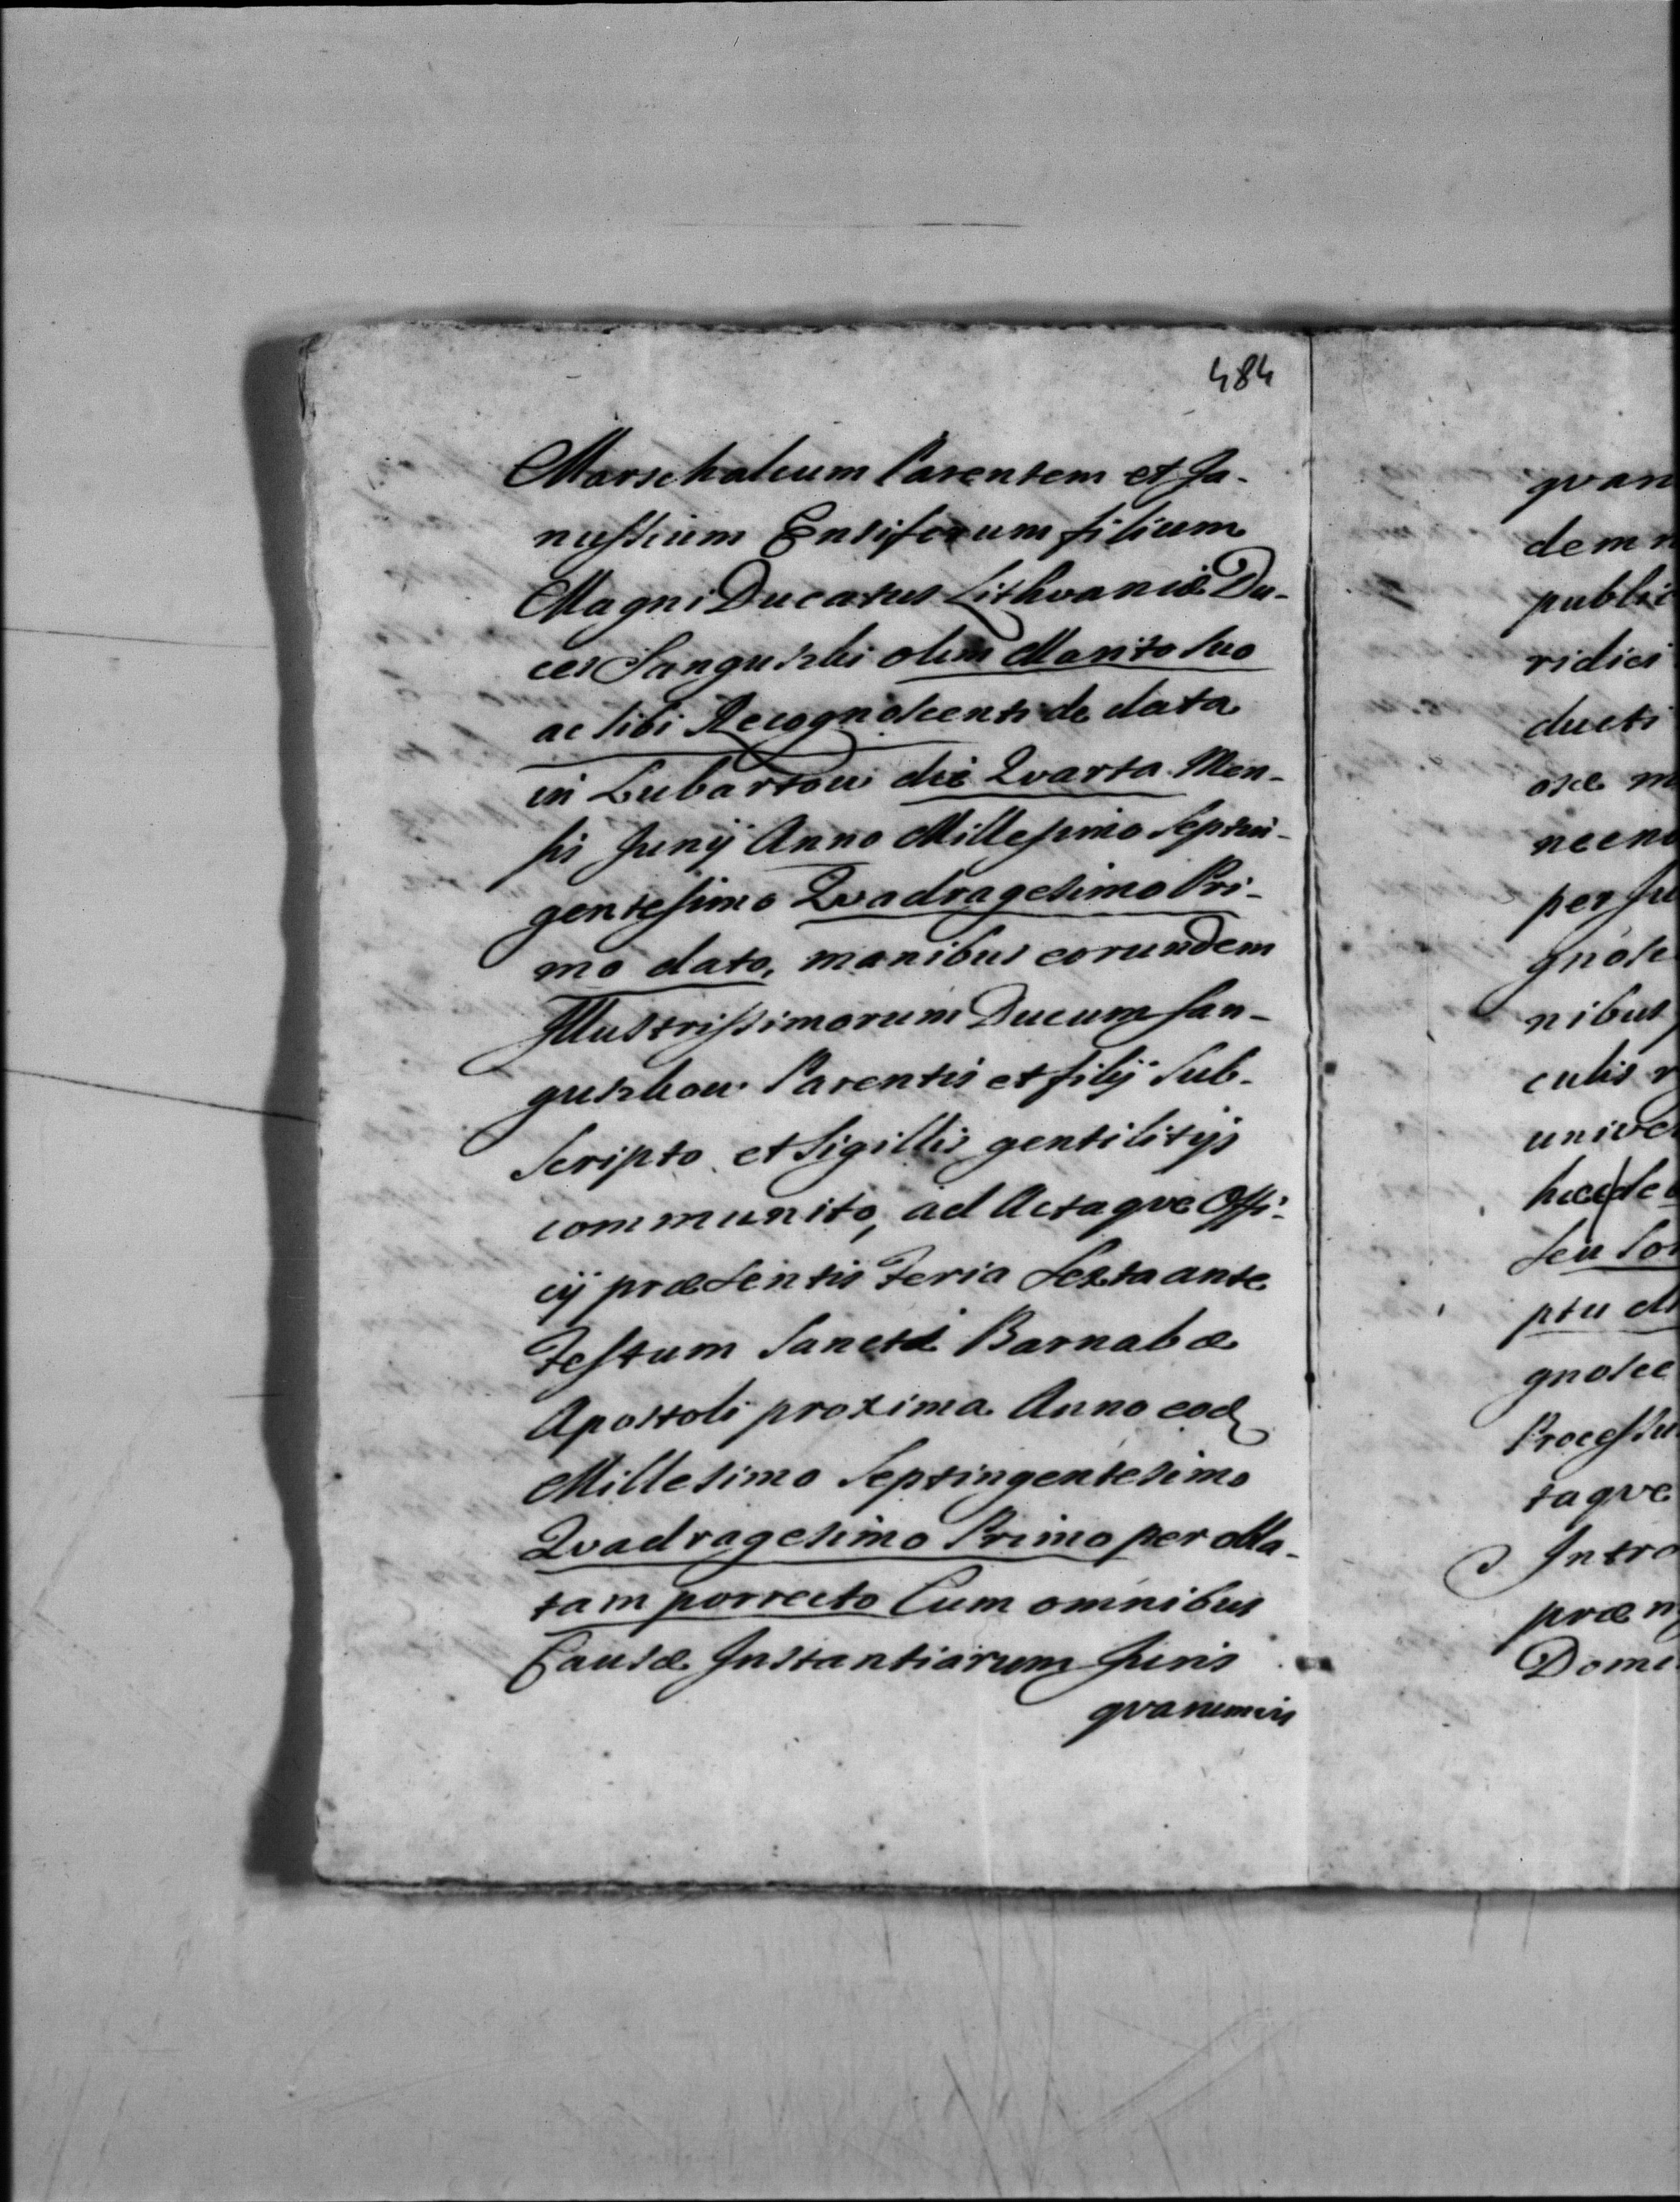 484
Marschalcum Parentem et Ja-
nussium Ensiferum filium
Magni Ducatus Lithvaniæ Du-
ces Sanguszki olim Marito suo
ac sibi Recognoscenti de data
in Lubartow die Qvarta Men-
sis Junij Anno Millesimo Septin-
gentesimo Qvadragesimo Pri-
mo dato, manibus eorundem
Illustrissimorum Ducum San-
guszkow Parentis et filij Sub-
scripto et Sigillis gentilitijs
communito, ad Actaqve Offi-
cij præsentis Feria Sexta ante
Festum Sancti Barnabæ
Apostoli proxima Anno eod
Millesimo Septingentesimo
Qvadragesimo Primo per obla-
tam porrecto Cum omnibus
Causæ Instantiarum Juris
qvarumvis
qvar
dem n
public
ridici
ducti
osæ m
necno
per Ju
gnosc
nibus
culis
univer
hæc de
seu So
ptu
gnosce
Processu
taqve
Intro
præ n
Domi